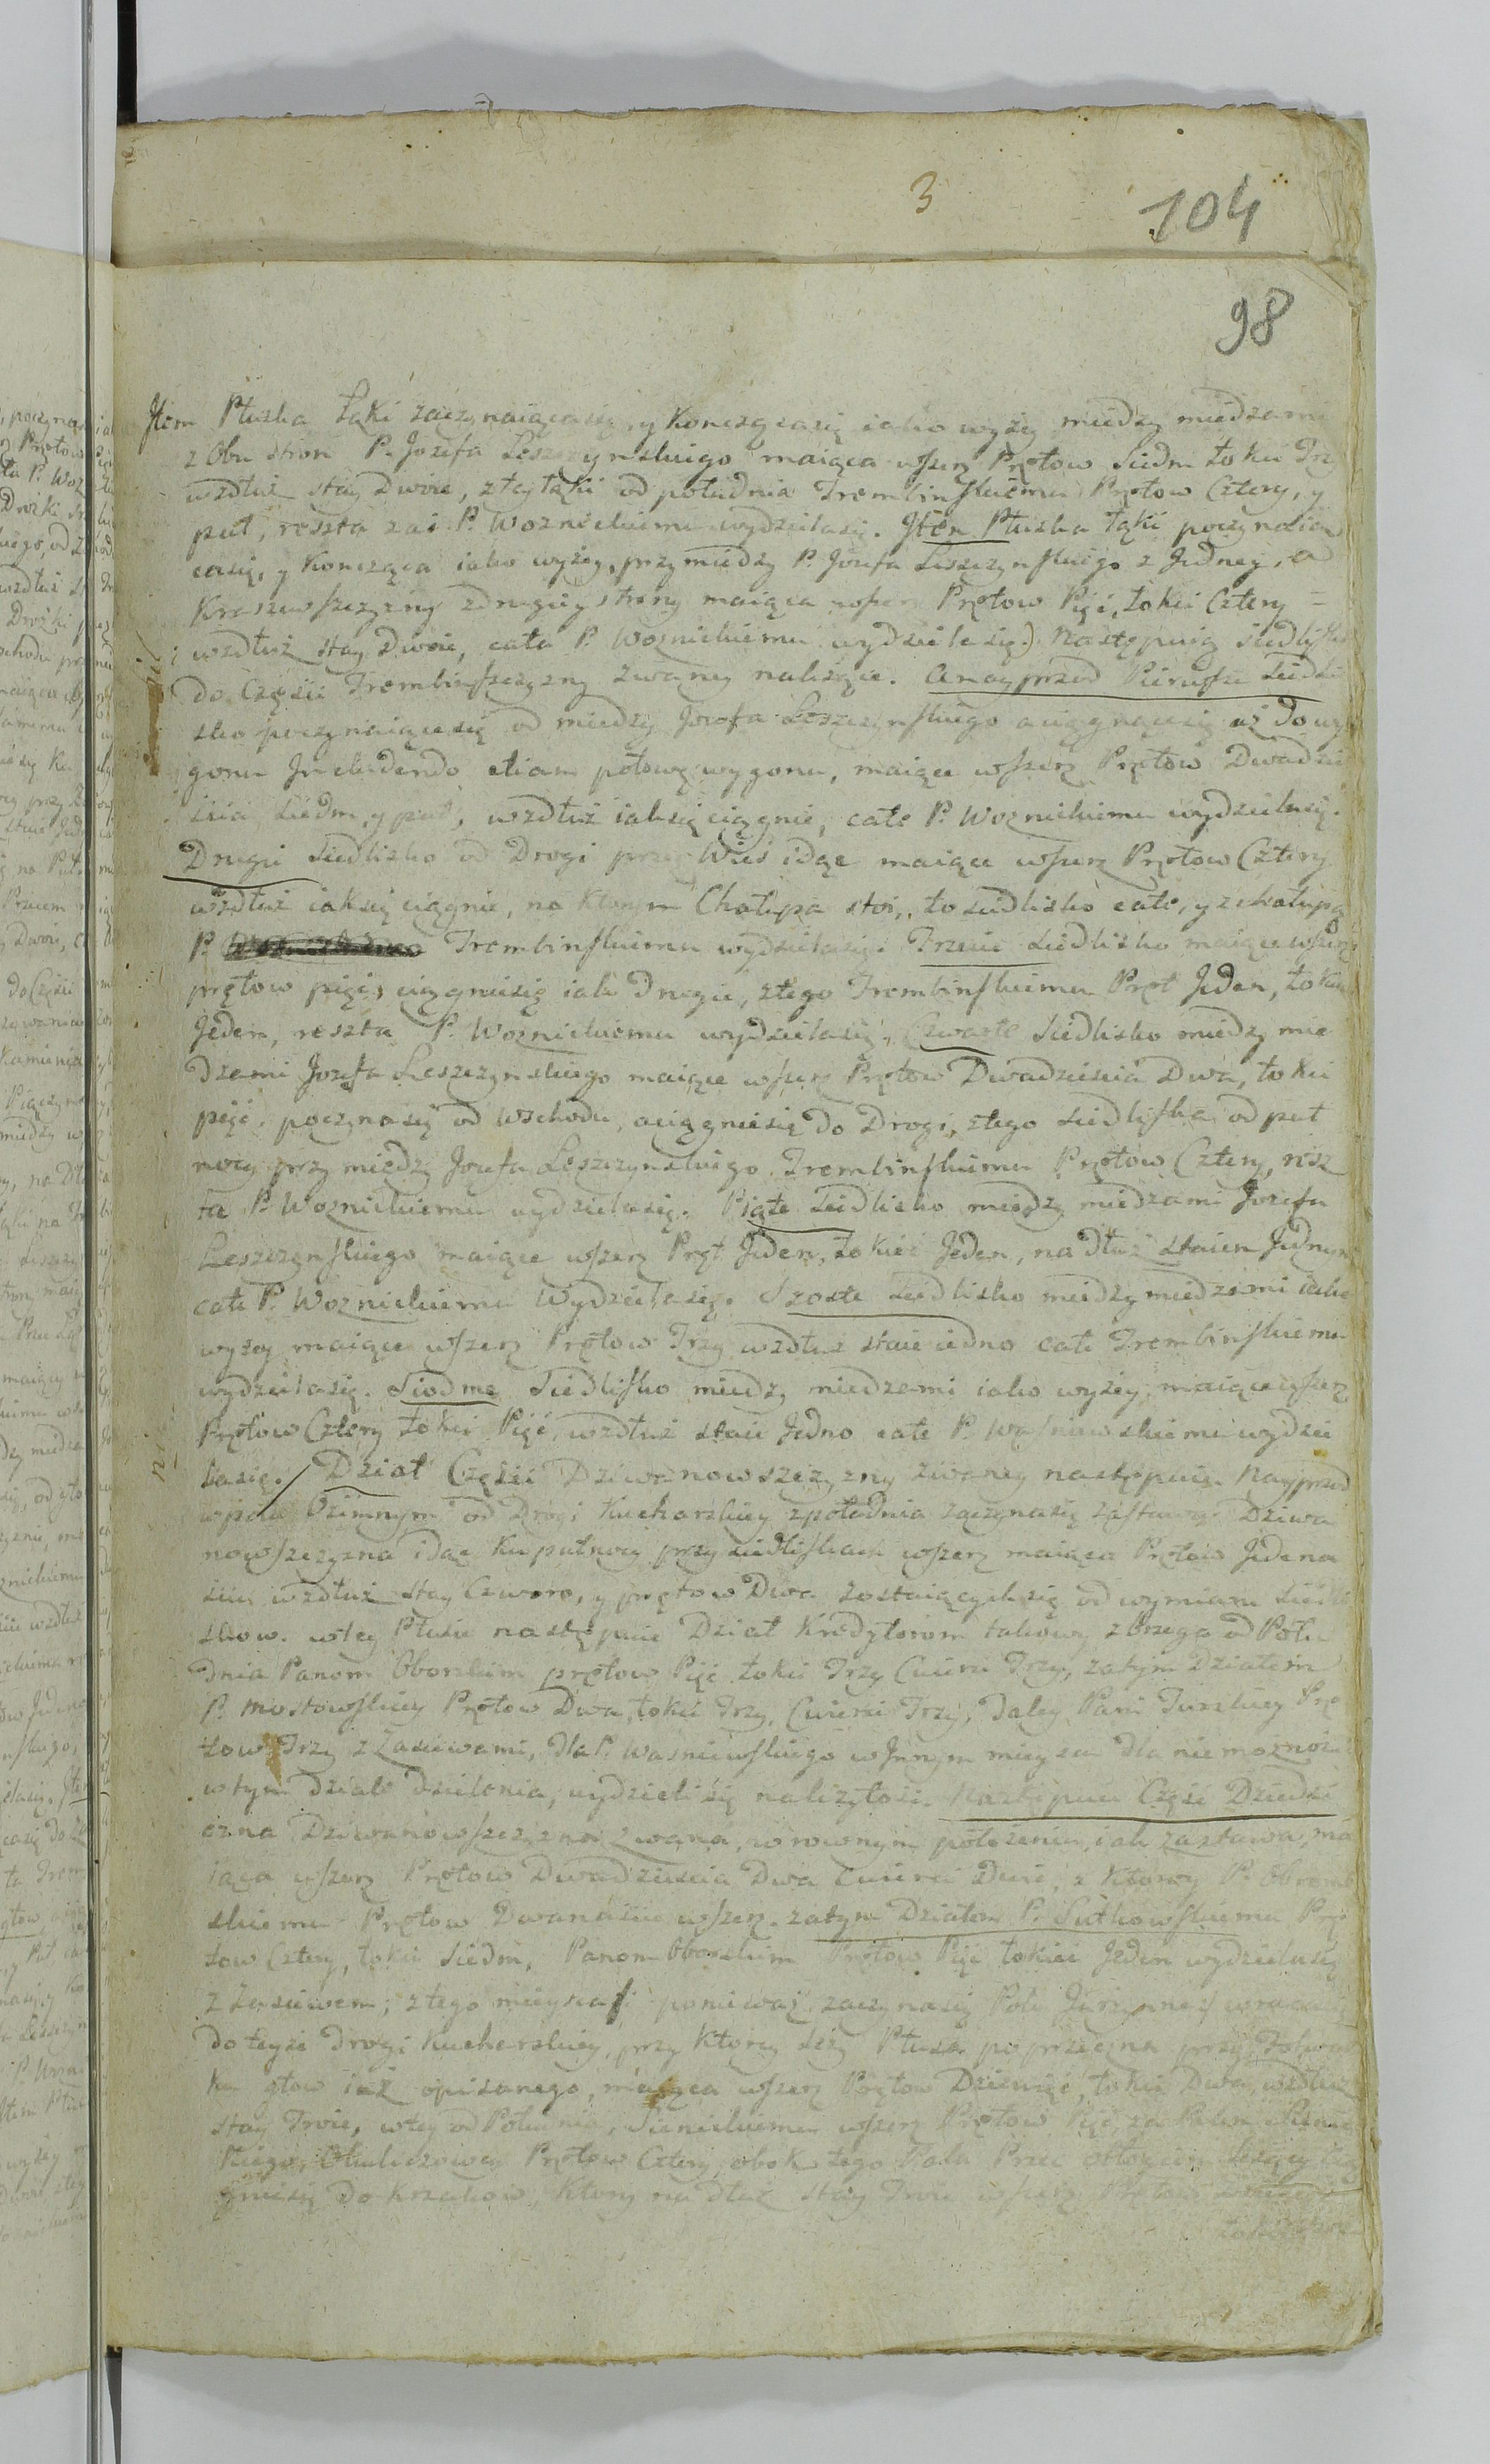 3
104
98
Item Płuska Łąki zaczynaiącasię, y Konczącasię iako wyżey miedzy miedzami
z Obu stron P. Jozefa Leszczynskiego maiąca wszerz Prętow Siedm łokci Trzy
wzdłuż stay Dwoie, z tey łąki od południa Trembinskiemu Prętow Cztery, y
puł, reszta zaś P. Woznickiemu wydzielasię. Item Płuska Łąki poczynaiąca
casię, y Koncząca iako wyżey, przy miedzy P. Jozefa Leszczynskiego z Jedney, a
Kraszewszczyzny z drugiey strony maiąca wszerz Prętow Pięć, łokci Cztery =
wzdłuż stay Dwoie, cała P. Woznickiemu wydzielasię.) Następuią siedliska
do Części Trembinszczyzny zwaney należące. A nayprzod Pierwsze Siedli
sko poczynaiącesię od miedzy Jozefa Leszczynskiego a ciągnącesię aż do wy
gonu Includendo etiam połowę wygonu, maiące wszerz Prętow Dwadzie
ścia Siedm, y puł, wzdłuż iak się ciągnie, całe P. Woznickiemu wydzielasię.
Drugie Siedlisko od Drogi przez Wieś idąc maiące wszerz Prętow Cztery
wzdłuż iak się ciągnie, na Ktorym Chałupa stoi, to siedlisko całe, y z chałupą
P. Trembinskiemu wydzielasię. Trzecie Siedlisko maiące wszerz
prętow pięć, ciągniesię iak Drugie, z tego Trembinskiemu Pręt Jeden, łokci
Jeden, reszta P. Woznickiemu wydzielasię, Czwarte Siedlisko miedzy mie
dzami Jozefa Leszczynskiego maiące wszerz Prętow Dwadziescia Dwa, łokci
pięć, poczynasię od Wschodu, a ciągniesię do Drogi, z tego Siedliska od puł
nocy przy miedzy Jozefa Leszczynskiego Trembinskiemu Prętow Cztery, resz
ta P. Woznickiemu wydzielasię. Piąte Siedlisko miedzy miedzami Jozefa
Leszczynskiego maiące wszerz Pręt Jeden, łokieć Jeden, na dłuż staien Jednym
całe P. Woznickiemu Wydzielasię. Szoste Siedlisko miedzy miedzami iako
wyżey maiące wszerz Prętow Trzy wzdłuż staie iedno całe Trembinskiemu
wydzielasię. Siodme Siedlisko miedzy miedzami iako wyżey maiące wszerz
Prętow Cztery łokci Pięć, wzdłuż staie Jedno całe P. Waśniewskiemu wydzie
lasię. / Dział Części Dziwanowszczyzny zwaney następuie. Nayprzod
w polu Ozimnym od Drogi Kucharskiey z południa zaczynasię zastawna Dziwa
nowszczyzna idąc Ku pułnocy przy siedliskach wszerz maiąca Prętow Jedena
ście wzdłuż stay Czworo, y prętow Dwa zostaiącychsię od wymiaru Siedli
skow. w tey Płusie następuie Dział Kredytorom takowy z brzega od Połu
dnia Panom Oborskim prętow Pięć łokci Trzy Cwierci Trzy, zatym Działem
P. Mostowskiey Prętow Dwa, łokci Trzy, Cwierci Trzy, Daley Pani Turskiey Prę
tow Trzy z Zasiewami, Dla P. Wasniewskiego w Innym mieyscu Dla niemożnośc
w tym dziale dzielenia, wydzieli się należytość. Następuie Część Dziedzi
czna Dziwanowszczyzna zwana, w rownym położeniu, iak zastawa, ma
iąca wszerz Prętow Dwadziescia Dwa Cwierci Dwie, z Ktorey P. Obremb
skiemu Prętow Dwanaście wszerz. zatym Działem P. Sutkowskiemu Prę
tow Cztery, łokci Siedm, Panom Oborskim Prętow Pięć łokieć Jeden wydzielasię
z Zasiewem; z tego mieysca ponieważ zaczynasię Pole Jarzynne wracaiąc
do teyże Drogi Kucharskiey, przy Ktorey Leży Płusa poprzeczna przy
ku głow iuż opisanego, maiąca wszerz Prętow Dziewięć, łokci Dwa, wzdłuż
stay Troie, w tey od Południa, Sienickiemu wszerz Prętow Pięć, za
Prętow Cztery, obok tego Pola Przez leżący
gniesię do Krzakow, Ktory na dłuż stay Troie wszerz Prętow
łokci